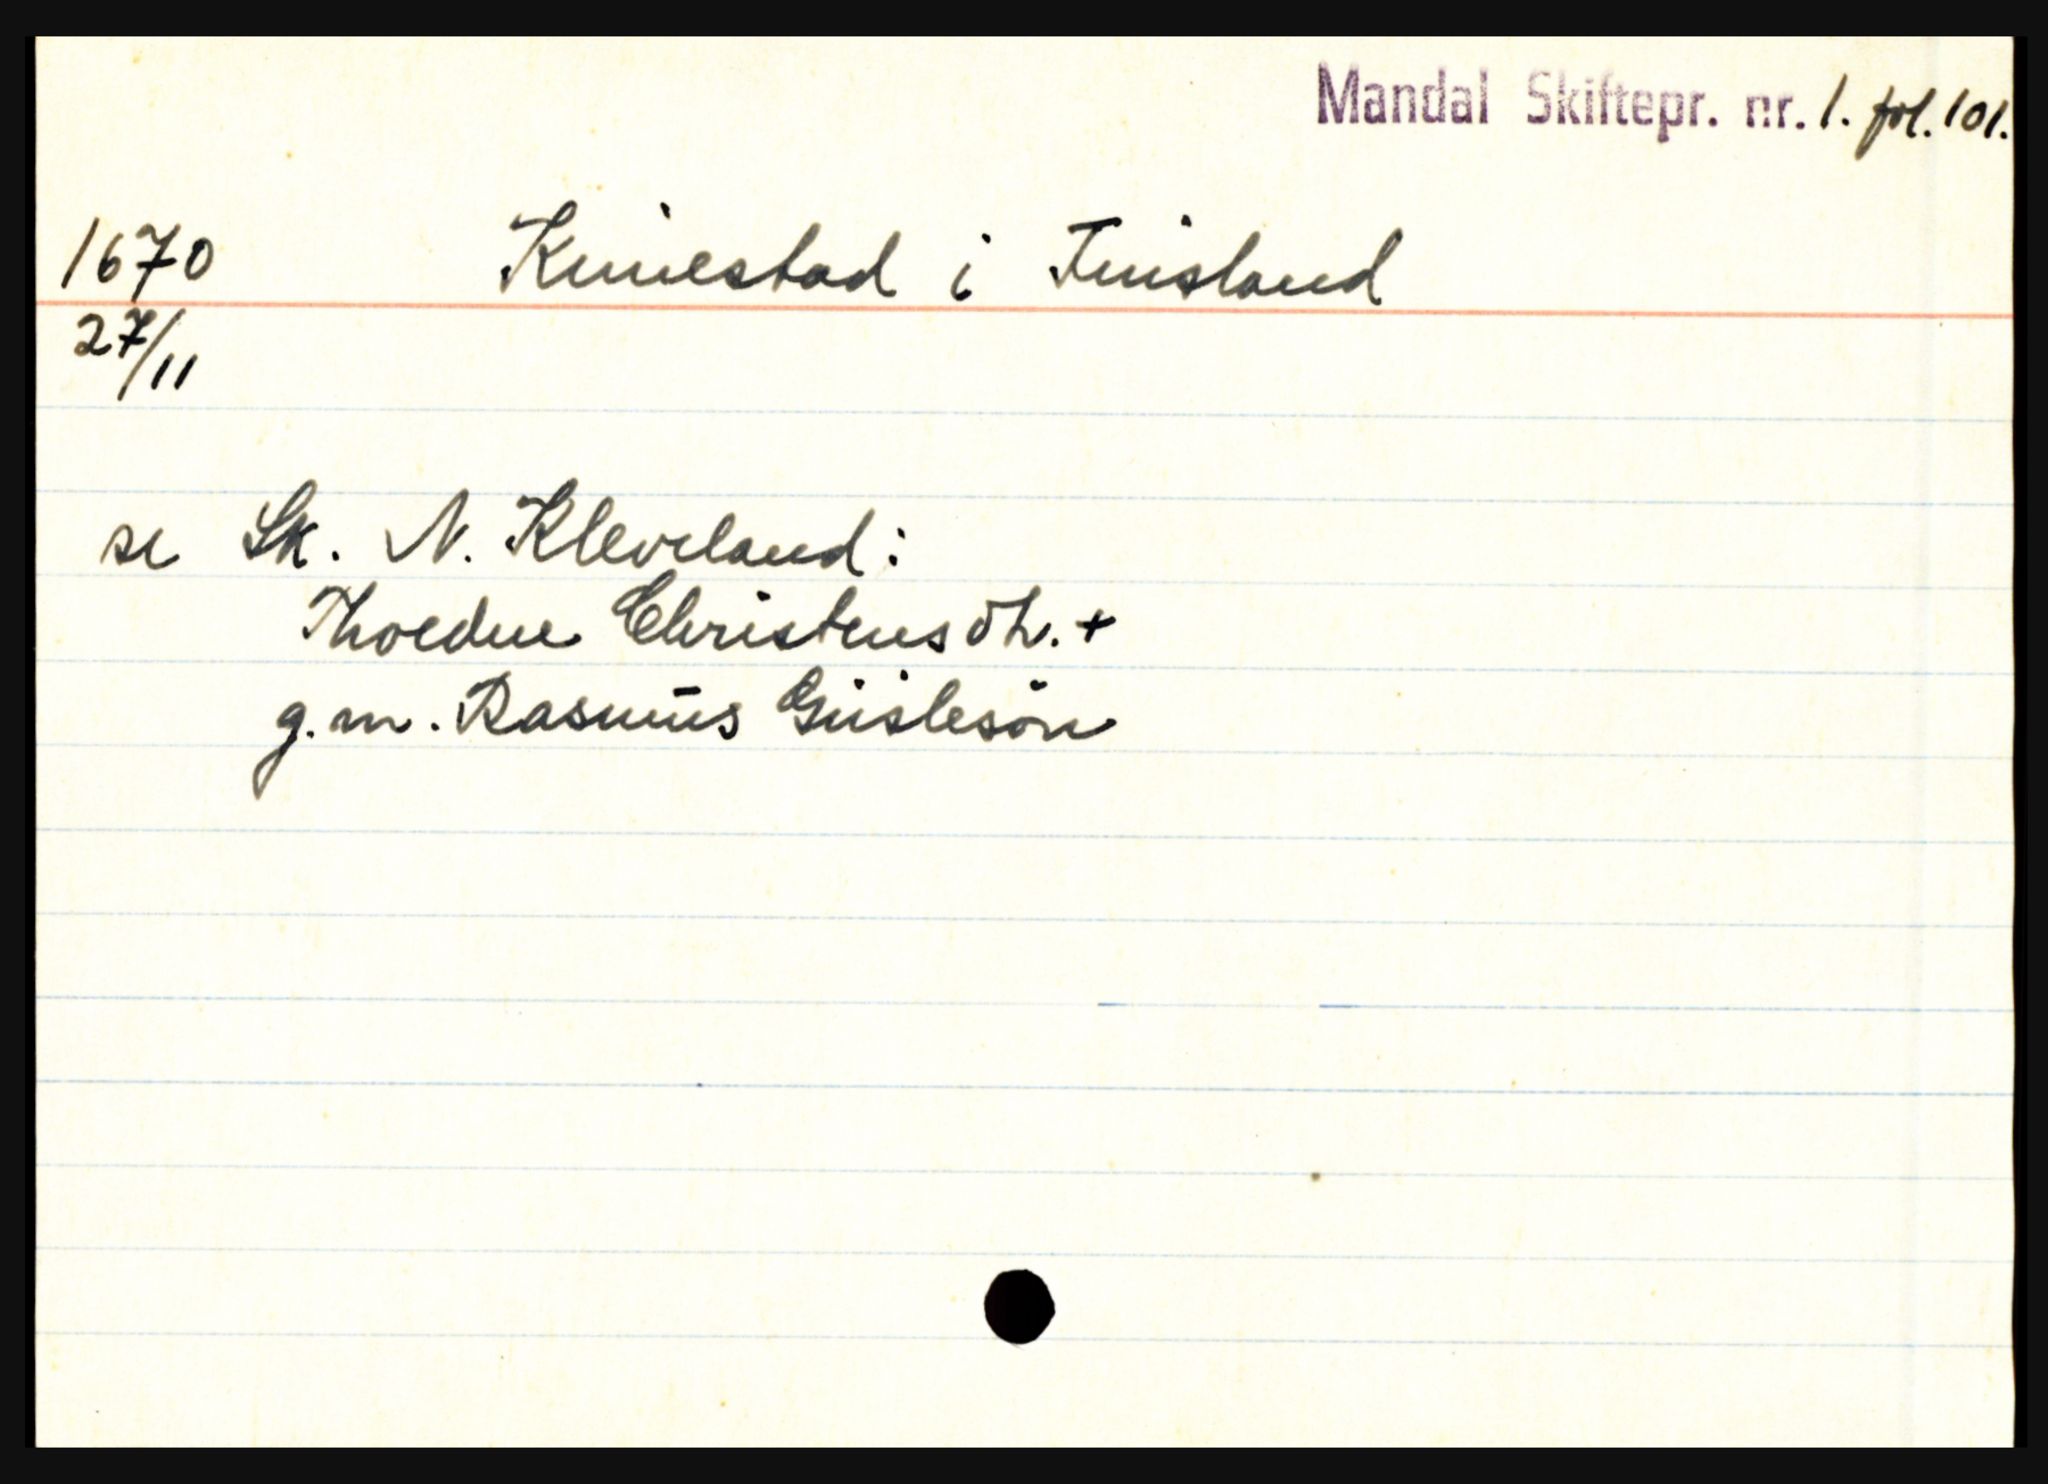 Mandal Skiftepr. nr. 1. fol. 101.
1670 Kinestad i Finsland
27/11
se Sk. N. Kleveland:
Thoedne Christensdt. +
g. m. Rasmus Giislesön